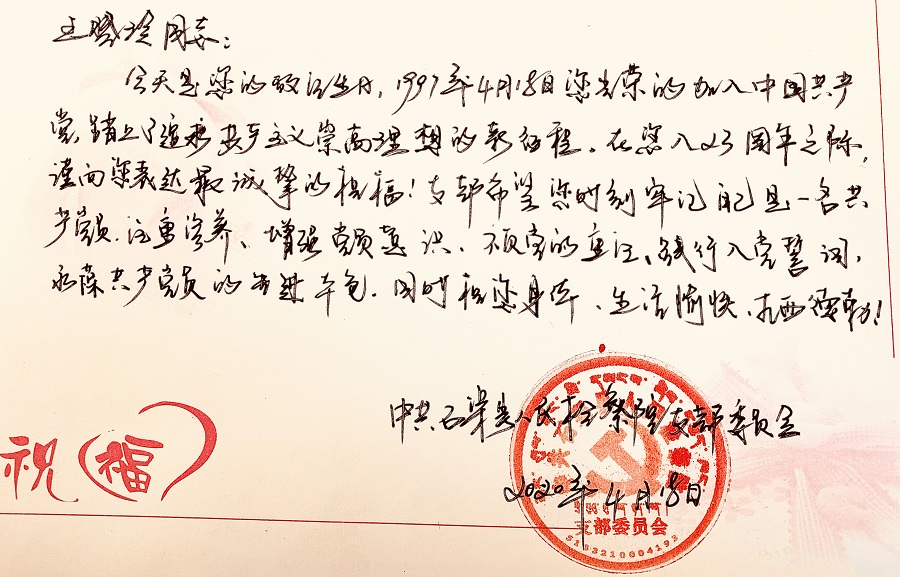 王 同志：
今天是您的政治生日，1997年4月18日您光荣的加入中国共产
党，踏上了追求共产主义崇高理想的新征程。在您入23周年之际，
谨向您表达最诚挚的祝福！支部希望您时刻牢记自己是一名共
产党员，注重修养、增强党员意识、不负党的重托、践行入党誓词，
永葆共产党员的先进本色。同时祝您身体、生活愉快、扎西德勒！
中共石渠县人民检察院支部委员会
2020年4月18日
祝福
支部委员会
5133210004193